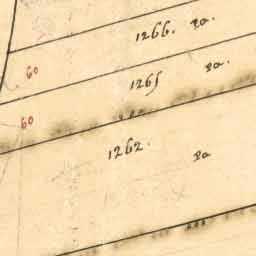 1266. pa.
60
1265 pa.
60
1262. pa